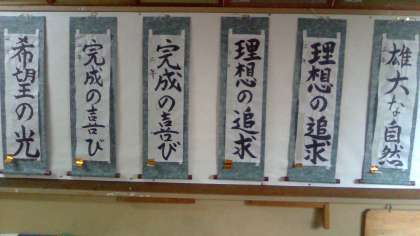 希望の光
完成の喜び
完成の喜び
理想の追求
理想の追求
雄大な自然